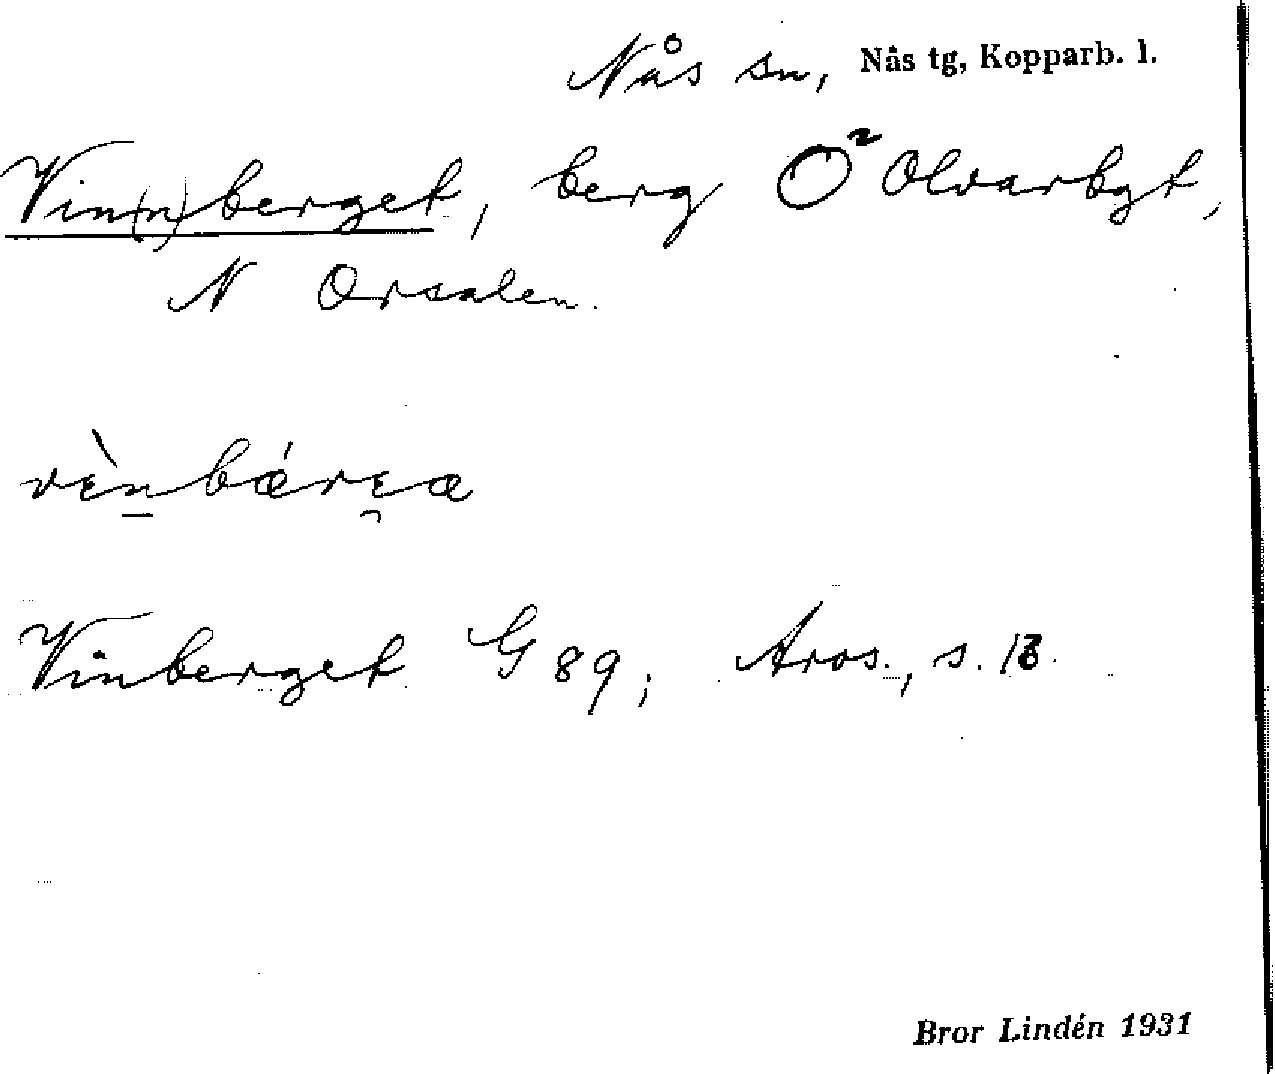 Nås sn, Nås tg, Kopparb. l.
Vin(n)berget, berg Ö Olvarbgt,
N Orsalen.
vɛ̀n̠bǽrɛ̯a
Vinberget G 89; Aros., s. 13.
Bror Lindén 1931